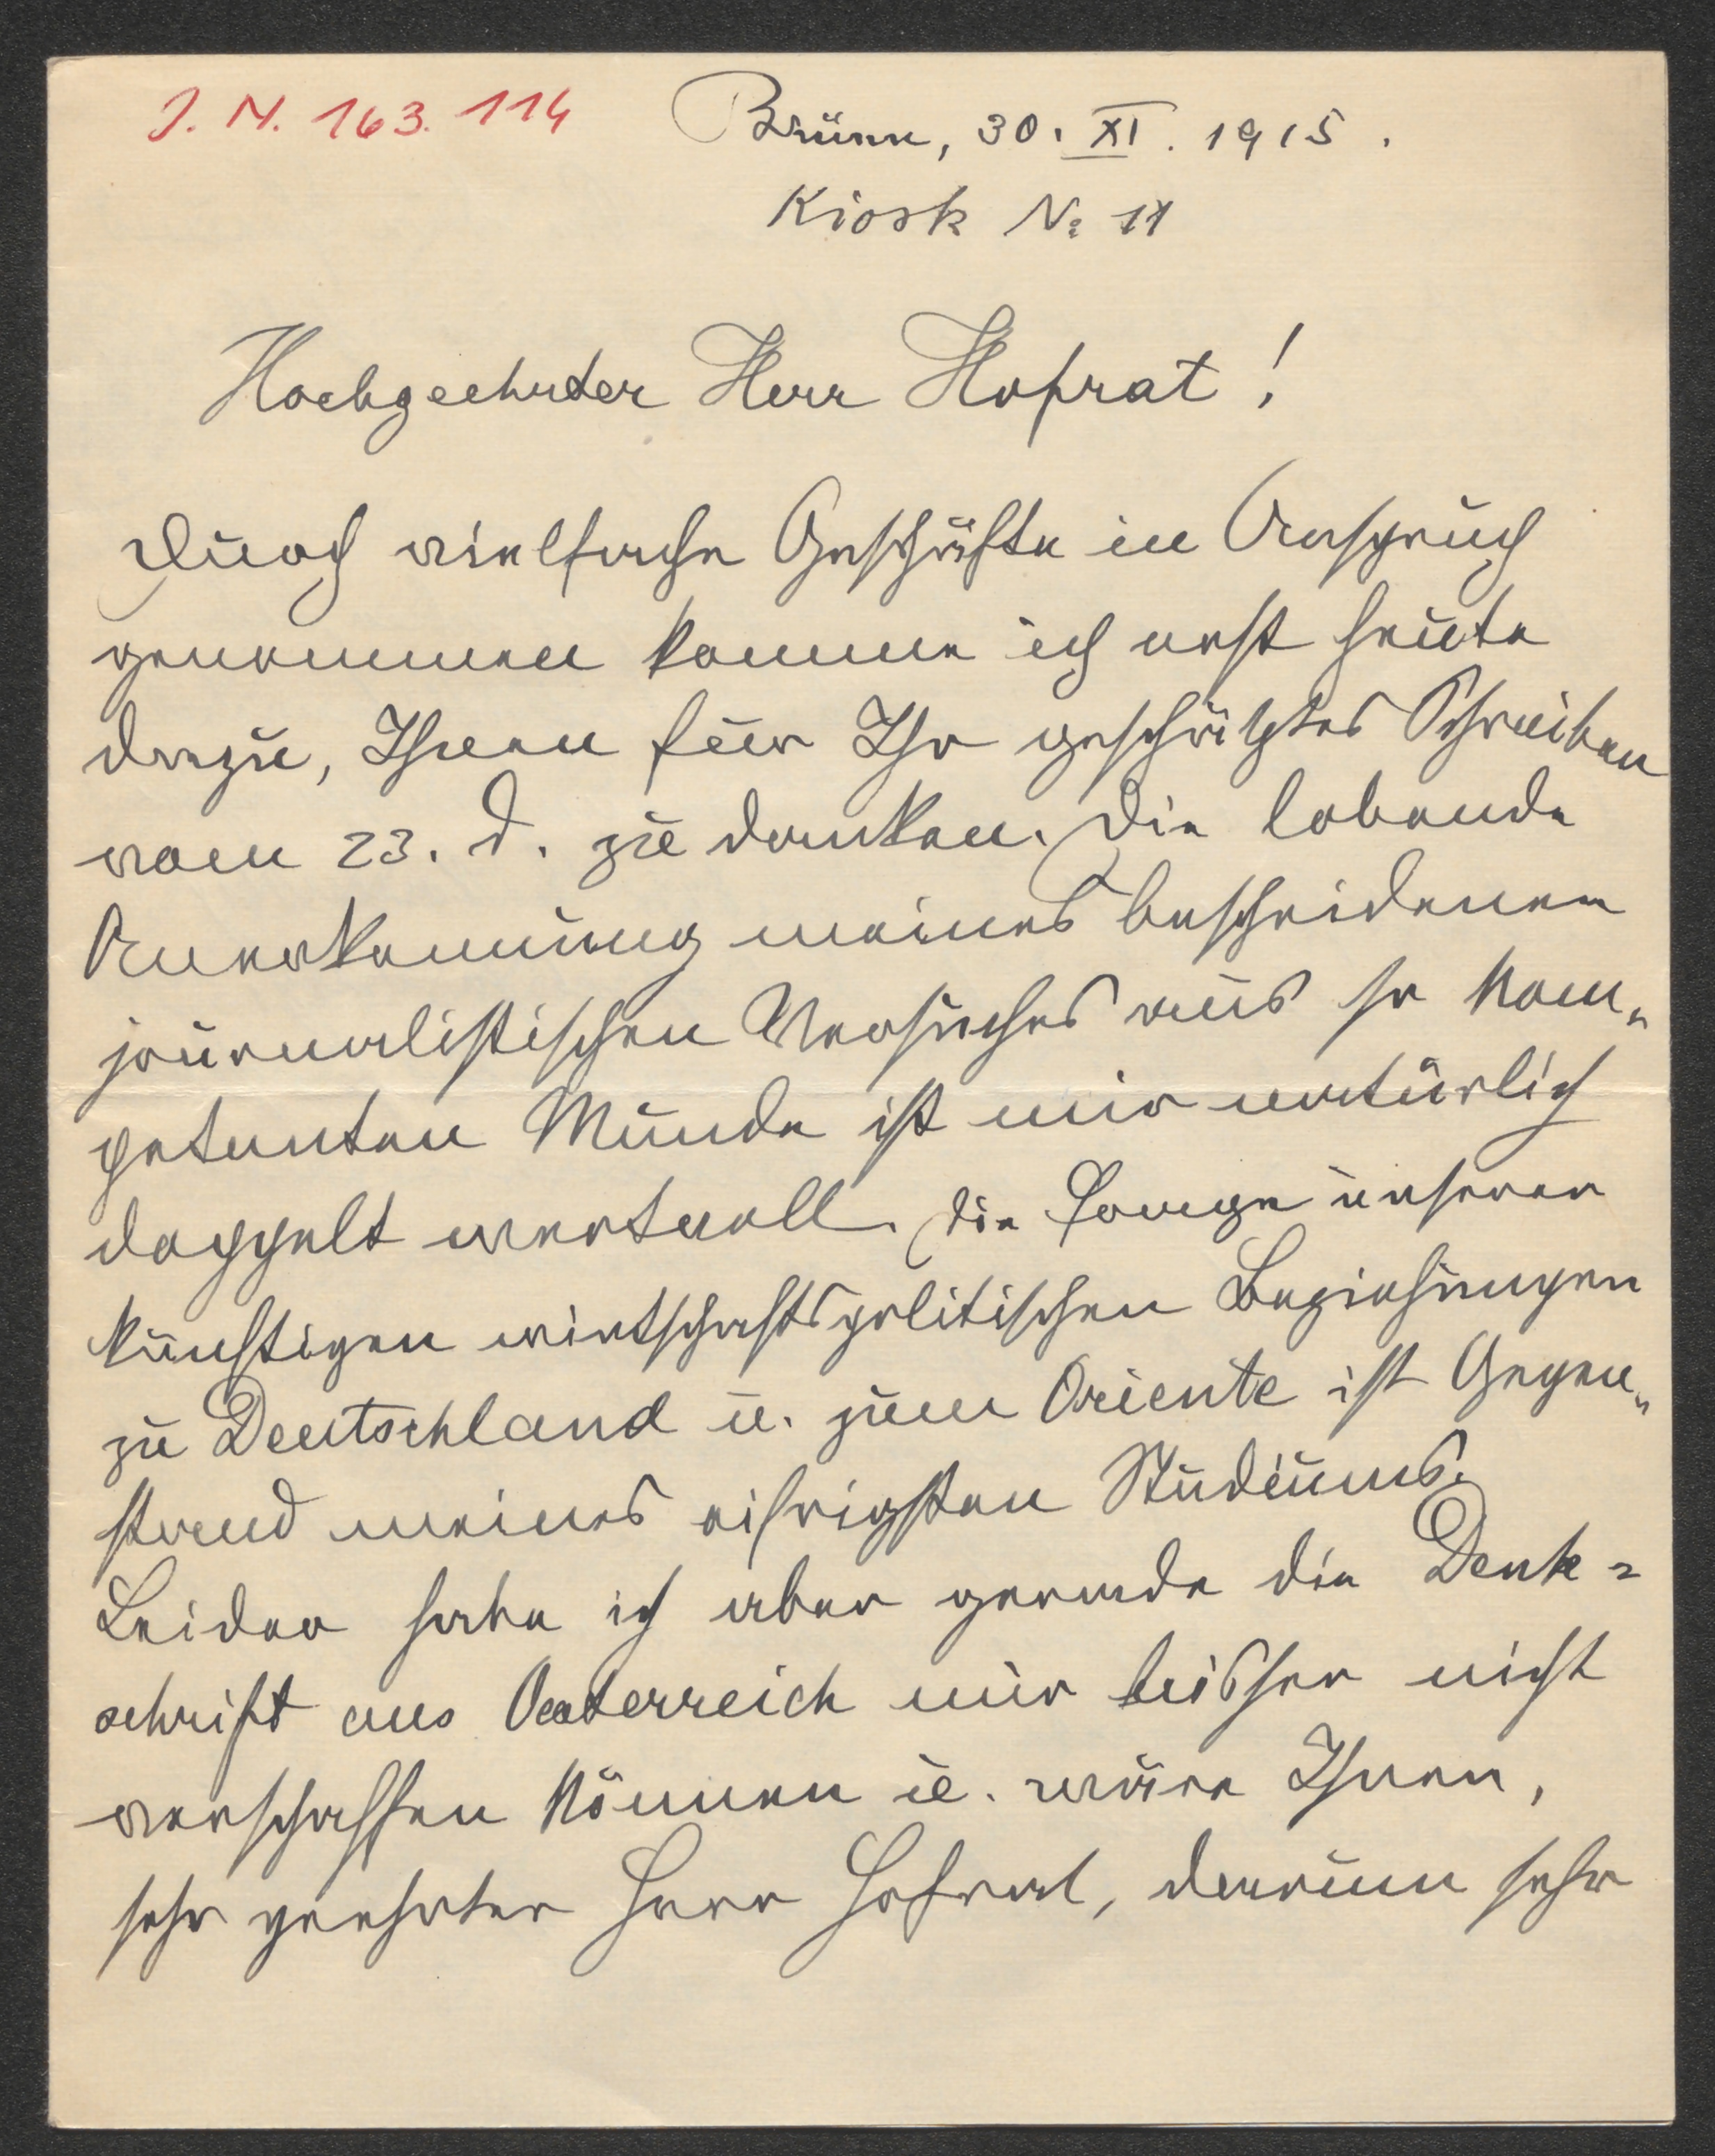 J. N. 163.114
Brünn, 30. XI. 1915.
Kiosk No 11
Hochgeehrter Herr Hofrat!
Durch vielfache Geschäfte in Anspruch
genommen komme ich erst heute
dazu, Ihnen für Ihr geschätztes Schreiben
vom 23. d. zu danken. Die lobende
Anerkennung meines bescheidenen
journalistischen Versuches aus so kom-
petenten Munde ist mir natürlich
doppelt wertvoll. Die Frage unserer
künftigen wirtschaftspolitischen Beziehungen
zu Deutschland u. zum Oriente ist Gegen-
stand meines eifrigsten Studiums.
Leider habe ich aber gerade die Denk=
schrift aus Oesterreich mir bisher nicht
verschaffen können u. wäre Ihnen,
sehr geehrter Herr Hofrat, darum sehr